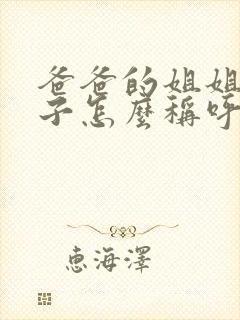 爸爸的姐姐
子怎麼稱呼
惠海澤